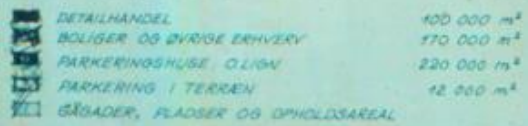 DETAILHANDEL 100 000 m²
BOLIGER OG ØVRIGE ERHVERV 170 000 m²
PARKERINGSHUSE O.LIGN 220 000 m²
PARKERING I TERRÆN 12 000 m²
GÅGADER, PLADSER OG OPHOLDSAREAL